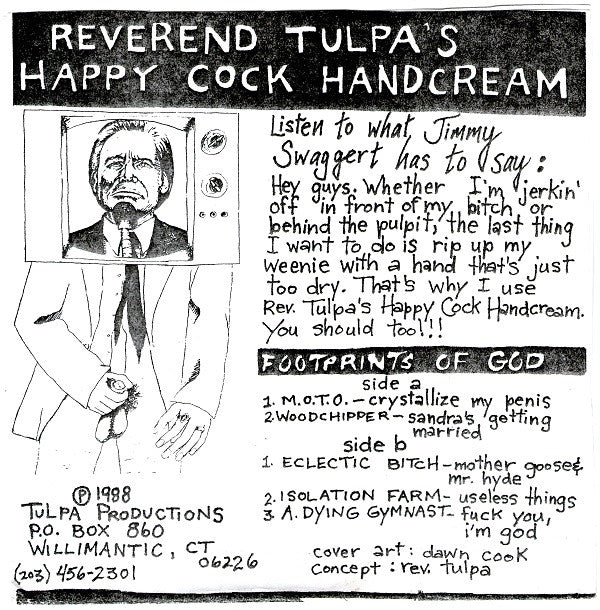 REVEREND TULPA'S
HAPPY COCK HANDCREAM
Listen to what Jimmy
Swaggert has to say:
Hey guys. Whether I'm jerkin'
off in front of my bitch, or
behind the pulpit, the last thing
I want to do is rip up my
weenie with a hand that's just
too dry. That's why I use
Rev. Tulpa's Happy Cock Handcream.
You should too!!!
FOOTPRINTS OF GOD
side a
1. M.O.T.O. – crystallize my penis
2. WOODCHIPPER – sandra's getting
married
side b
1. ECLECTIC BITCH – mother goose &
mr. hyde
2. ISOLATION FARM – useless things
3. A. DYING GYMNAST – fuck you,
i'm god
cover art: dawn cook
concept: rev. tulpa
℗ 1988
TULPA PRODUCTIONS
P.O. BOX 860
WILLIMANTIC, CT
06226
(203) 456-2301